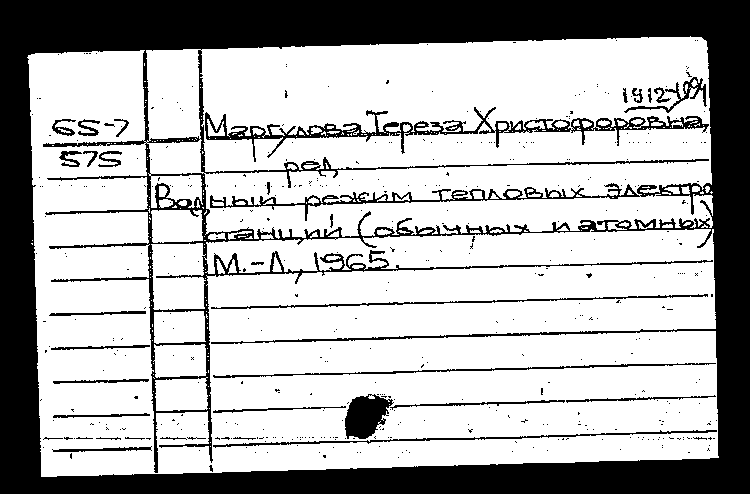 1912-1994
65-7
575
Маргулова, Тереза Христофоровна,
ред.
Водный режим тепловых электро
станций (обычных и атомных)
М.-Л., 1965.